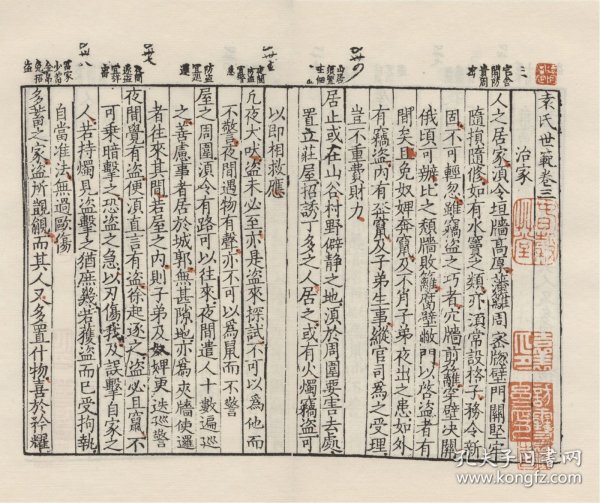 袁氏世範卷三
治家
人之居家須令垣牆高厚藩籬周密牕壁門關堅牢
隨損隨修如有水竇之類亦須常設格子務令新
固不可輕忽雖竊盜之巧者穴牆剪籬穿壁決關
俄頃可辦比之頹牆敗籬腐壁敝門以啓盜者有
間矣且免奴婢奔竄及不肖子弟夜出之患如外
有竊盜內有奔竄及子弟生事縱官司爲之受理
豈不重費財力
居止或在山谷村野僻靜之地須於周圍要害去處
置立莊屋招誘丁多之人居之或有火燭竊盜可
以即相救應
凡夜犬吠盜未必至亦是盜來探試不可以爲他而
不警夜間遇物有聲亦不可以爲鼠而不警
屋之周圍須令有路可以往來夜間遣人十數遍巡
之善慮事者居於城郭無甚隙地亦爲夾牆使邏
者往來其間若屋之內則子弟及奴婢更迭巡警
夜間覺有盜便須直言有盜徐起逐之盜必且竄不
可乘暗擊之恐盜之急以刃傷我及誤擊自家之
人若持燭見盜擊之猶庶幾若獲盜而已受拘執
自當准法無過毆傷
多蓄之家盜所覬覦而其人又多置什物喜於矜耀
孔夫子旧书网